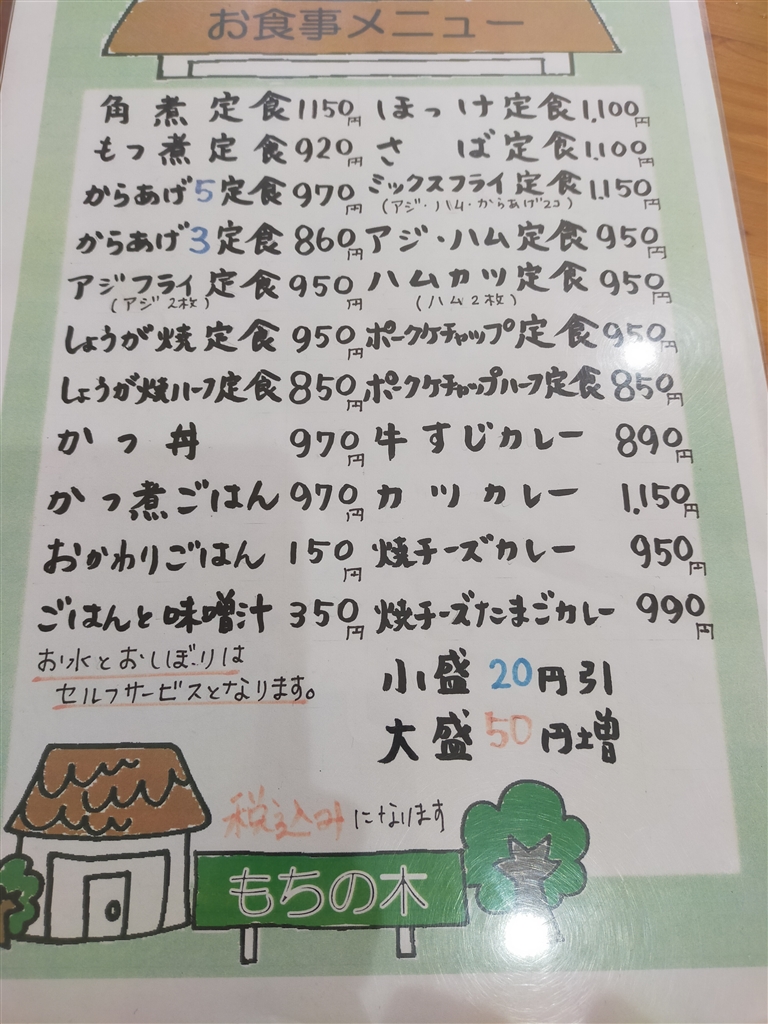 お食事メニュー
角煮定食 1150円
もつ煮定食 920円
からあげ5定食 970円
からあげ3定食 860円
アジフライ定食 950円
(アジ2枚)
しょうが焼定食 950円
しょうが焼ハーフ定食 850円
かつ丼 970円
かつ煮ごはん 970円
おかわりごはん 150円
ごはんと味噌汁 350円
お水とおしぼりは
セルフサービスとなります。
ほっけ定食 1,100円
さば定食 1,100円
ミックスフライ定食 1,150円
(アジ・ハム・からあげ2コ)
アジ・ハム定食 950円
ハムカツ定食 950円
(ハム2枚)
ポークケチャップ定食 950円
ポークケチャップハーフ定食 850円
牛すじカレー 890円
カツカレー 1,150円
焼チーズカレー 950円
焼チーズたまごカレー 990円
小盛20円引
大盛50円増
税込みになります
もちの木